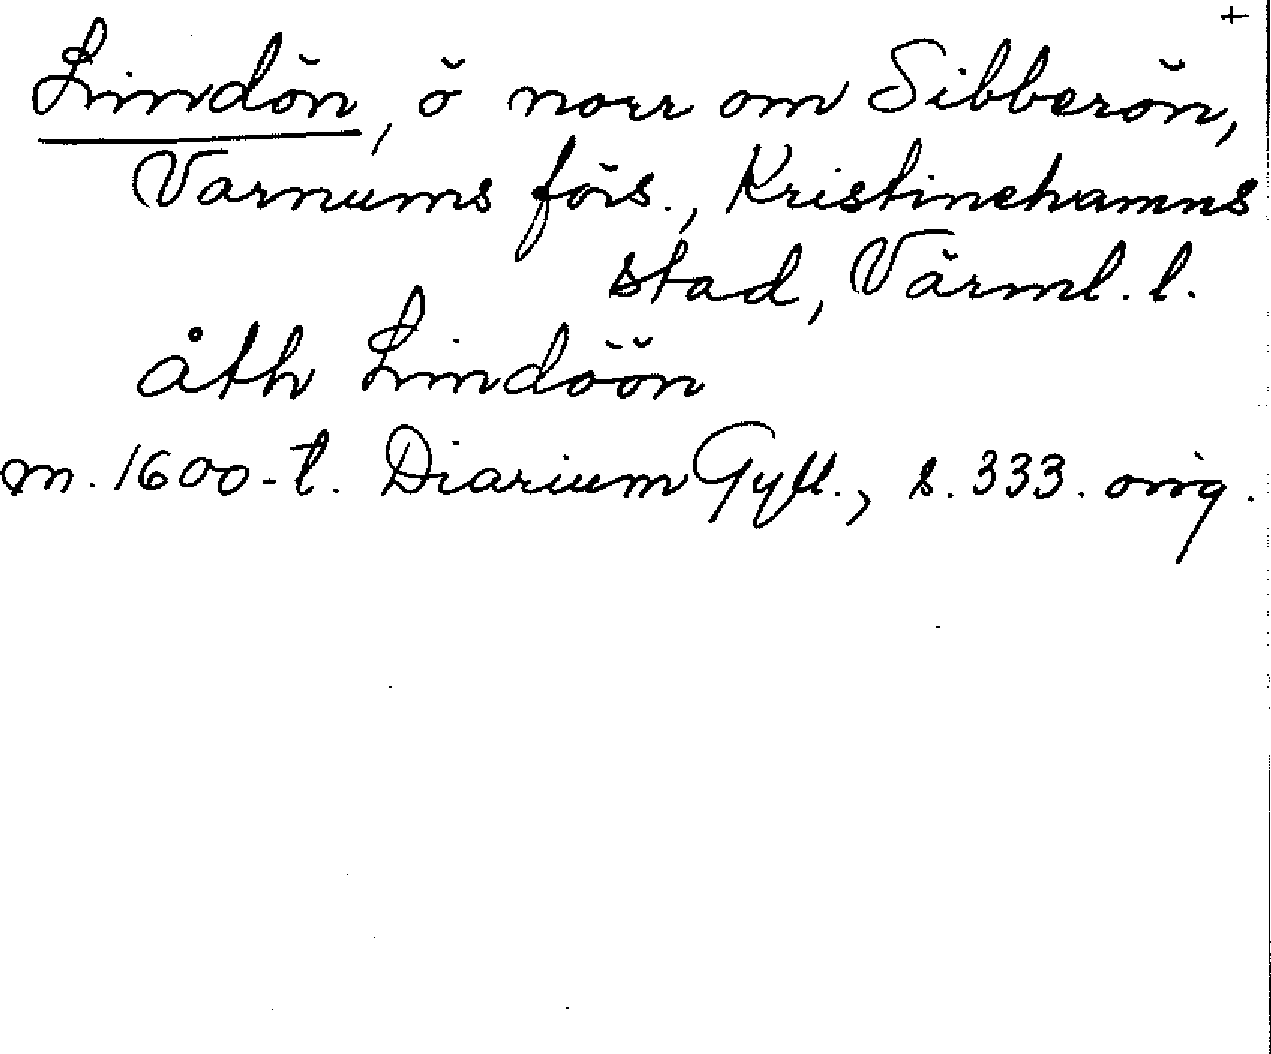 +
Lindön, ö norr om Sibberön,
Varnums förs., Kristinehamns
stad, Värml. l.
åth Lindöön
m. 1600-t. Diarium Gyll., s. 333. orig.